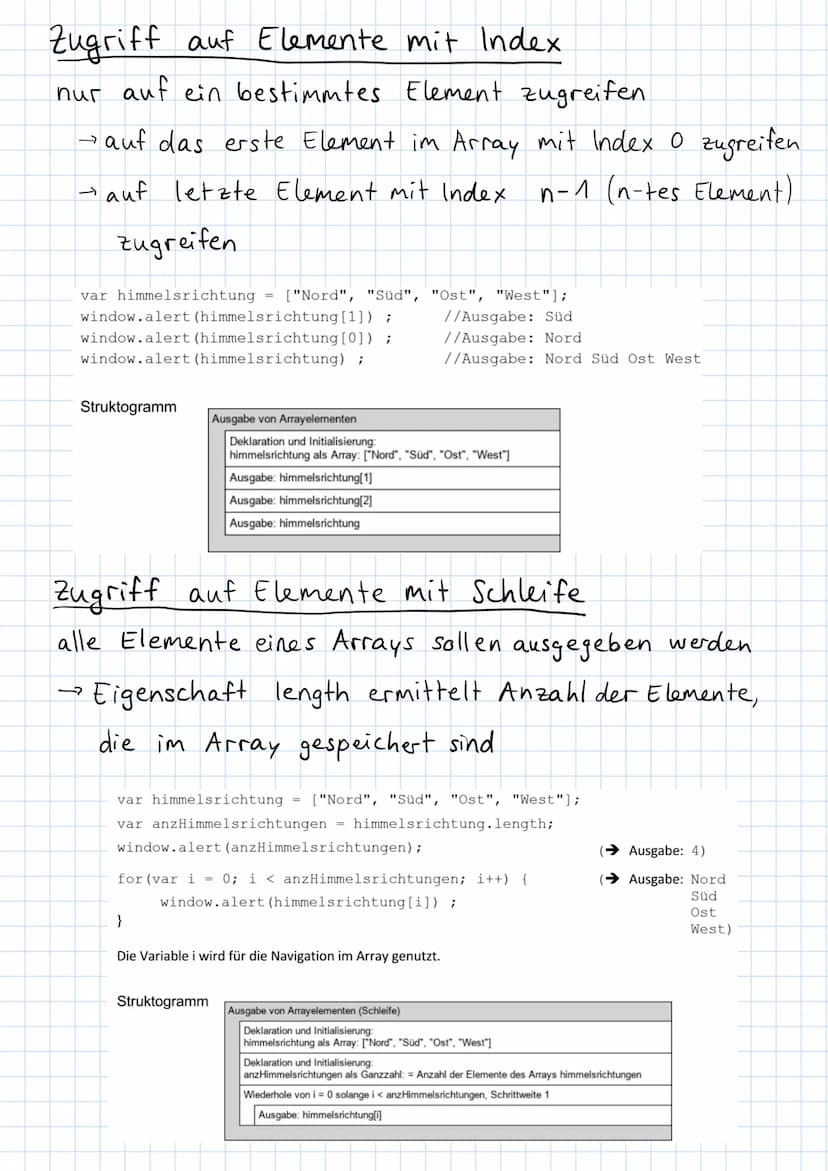 Zugriff auf Elemente mit Index
nur auf ein bestimmtes Element zugreifen
→ auf das erste Element im Array mit Index 0 zugreifen
→ auf letzte Element mit Index n-1 (n-tes Element)
zugreifen
var himmelsrichtung = ["Nord", "Süd", "Ost", "West"];
window.alert(himmelsrichtung[1]) ; //Ausgabe: Süd
window.alert(himmelsrichtung[0]) ; //Ausgabe: Nord
window.alert(himmelsrichtung) ; //Ausgabe: Nord Süd Ost West
Struktogramm
Ausgabe von Arrayelementen
Deklaration und Initialisierung:
himmelsrichtung als Array: ["Nord", "Süd", "Ost", "West"]
Ausgabe: himmelsrichtung[1]
Ausgabe: himmelsrichtung[2]
Ausgabe: himmelsrichtung
Zugriff auf Elemente mit Schleife
alle Elemente eines Arrays sollen ausgegeben werden
→ Eigenschaft length ermittelt Anzahl der Elemente,
die im Array gespeichert sind
var himmelsrichtung = ["Nord", "Süd", "Ost", "West"];
var anzHimmelsrichtungen = himmelsrichtung.length;
window.alert(anzHimmelsrichtungen); (➔ Ausgabe: 4)
for(var i = 0; i < anzHimmelsrichtungen; i++) { (➔ Ausgabe: Nord
Süd
window.alert(himmelsrichtung[i]) ;
Ost
}
West)
Die Variable i wird für die Navigation im Array genutzt.
Struktogramm
Ausgabe von Arrayelementen (Schleife)
Deklaration und Initialisierung:
himmelsrichtung als Array: ["Nord", "Süd", "Ost", "West"]
Deklaration und Initialisierung:
anzHimmelsrichtungen als Ganzzahl: = Anzahl der Elemente des Arrays himmelsrichtungen
Wiederhole von i = 0 solange i < anzHimmelsrichtungen, Schrittweite 1
Ausgabe: himmelsrichtung[i]